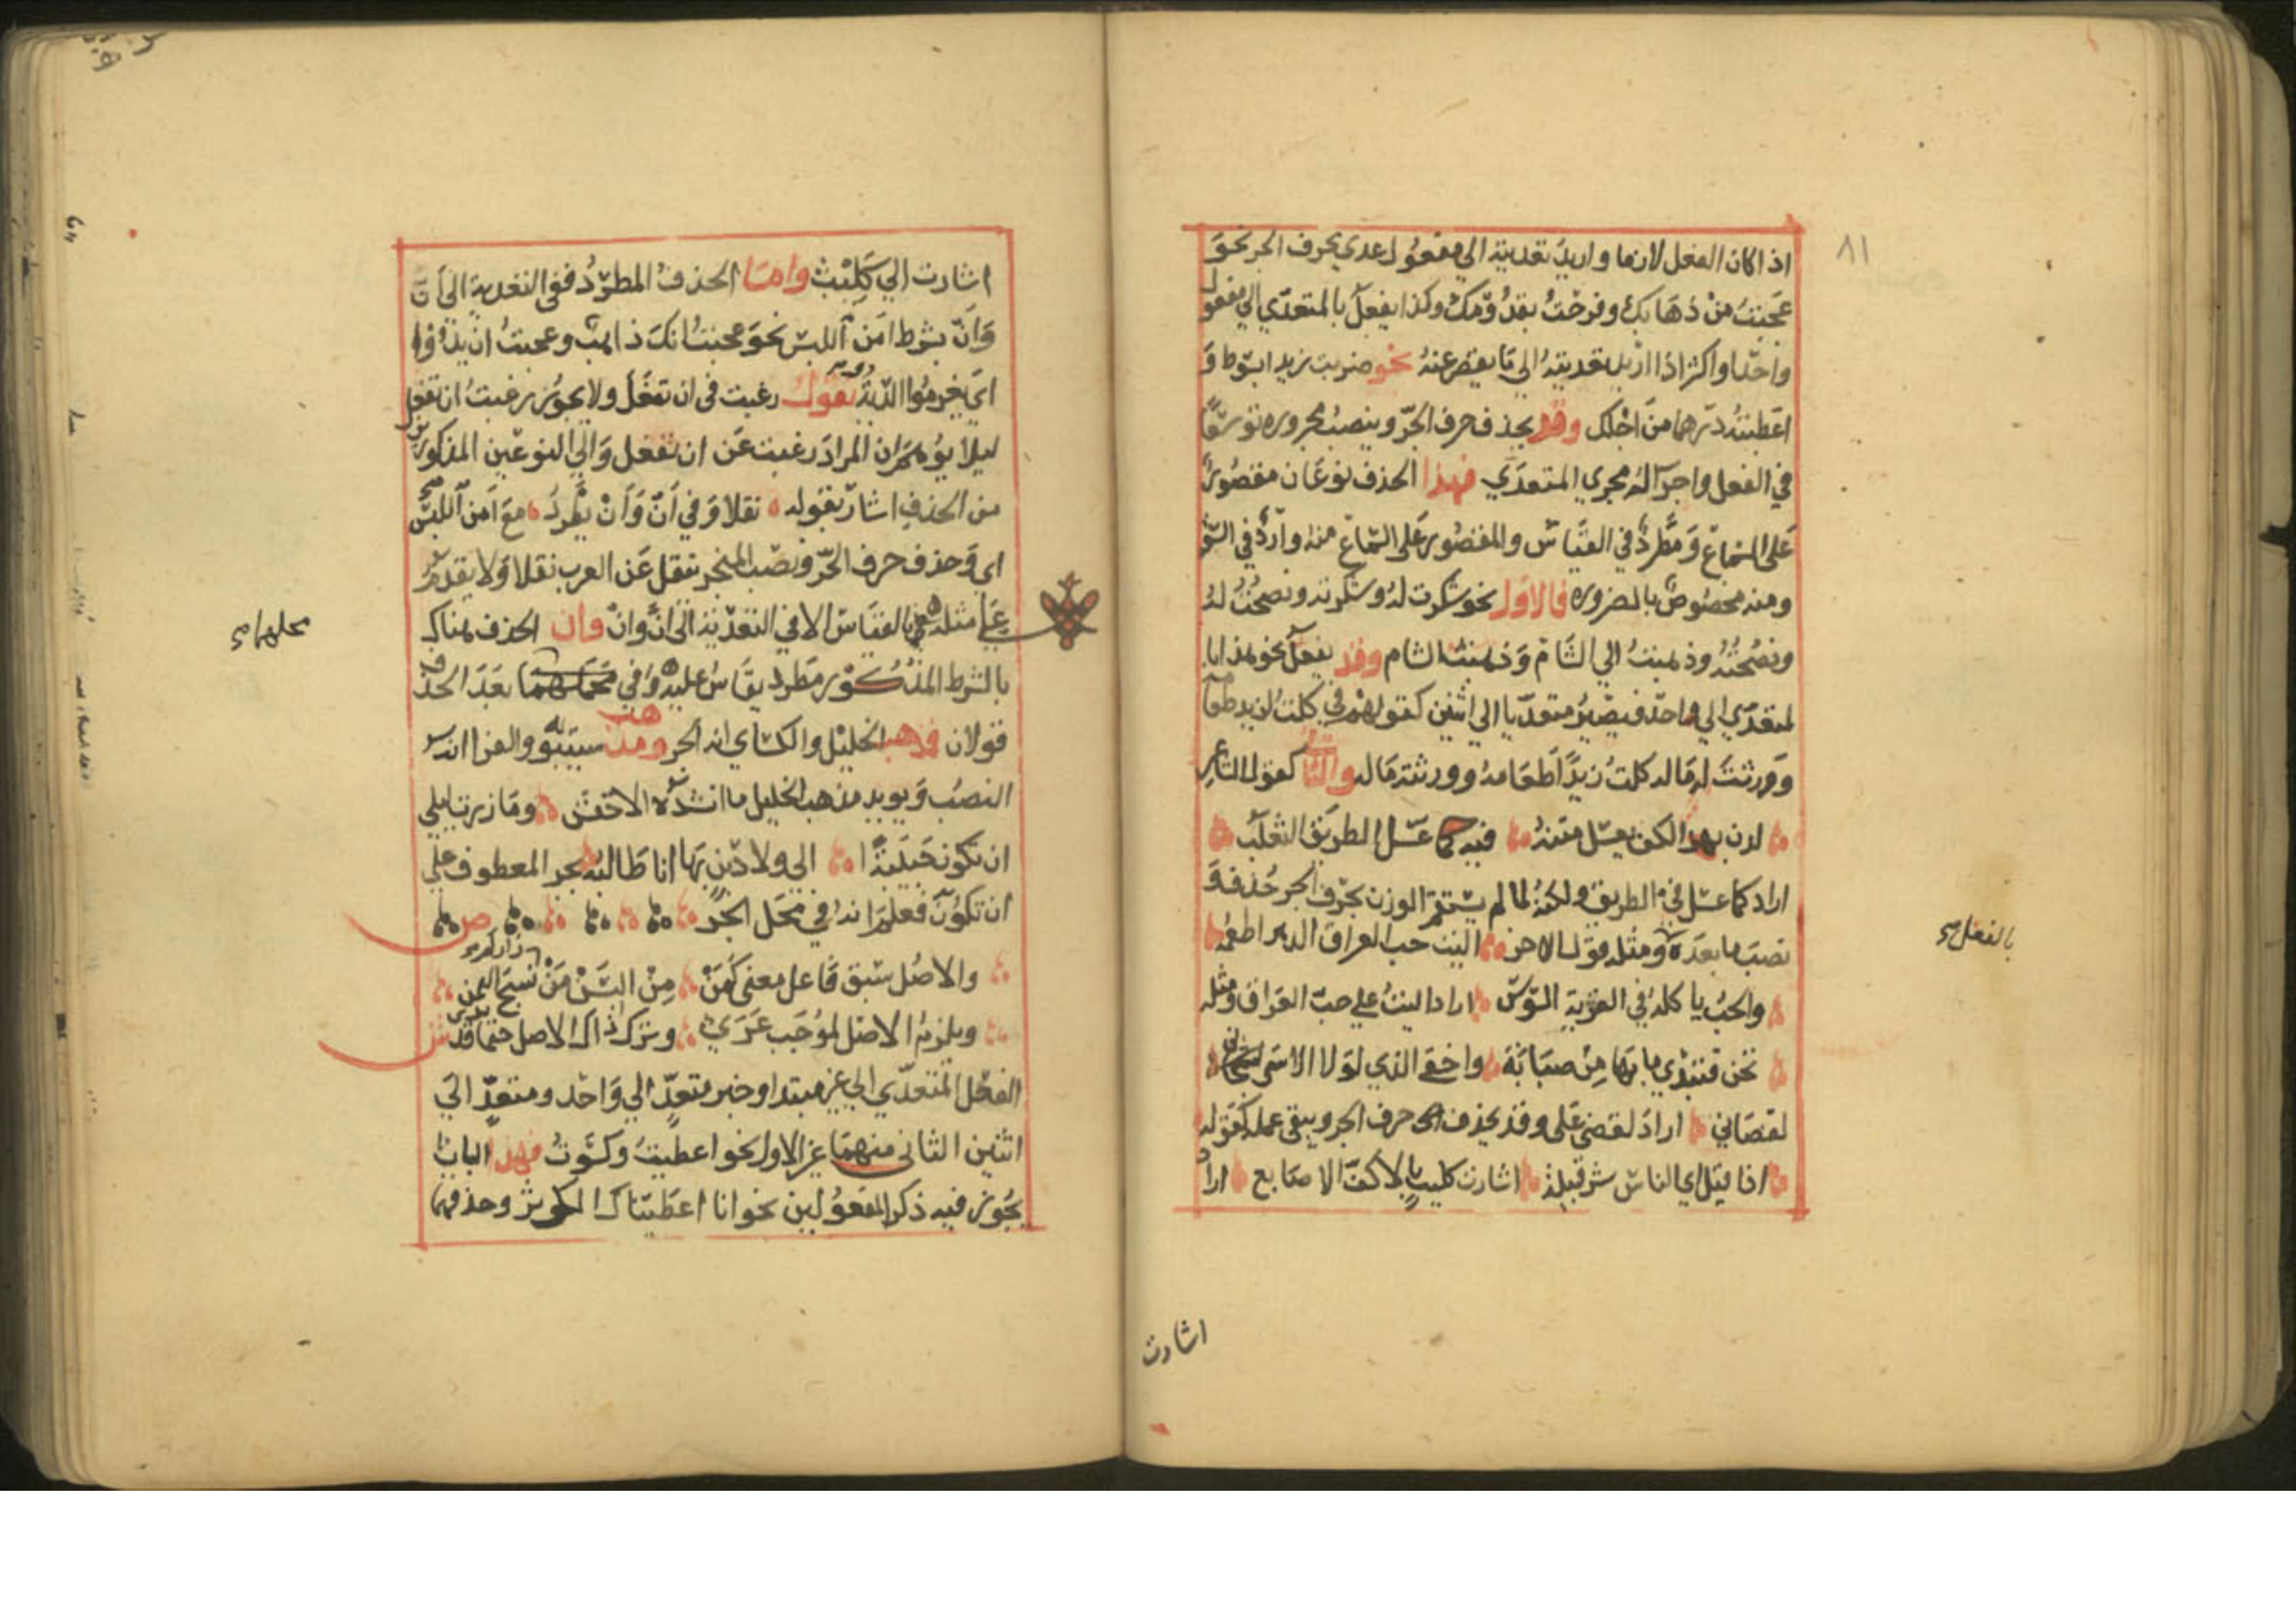 ٨١
اذا كان الفعل لازما واريد تعديته الي مفعول عدي بحرف الجر نحو
عجبت من ذهابك وفرحت بقدومك وكذا يفعل بالمتعدي الي مفعول
واحد او اكثر اذا اريد تعديته الي ما يقصر عنه نحو ضربت زيدا بسوط و
اعطيته درهما من اجلك وقد يحذف حرف الجر وينصب مجروره توسعا
في الفعل واجرا له مجري المتعدي فهذا الحذف نوعان مقصور
علي السماع ومطرد في القياس والمقصور علي السماع منه وارد في السعة
ومنه مخصوص بالضروره فالاول نحو شكرت له وشكرته ونصحت له
ونصحته وذهبت الي الشام وذهبت الشام وقد يفعل نحو هذا با
لمتعدي الي واحد فيصير متعديا الي اثنين كقولهم في كلت لزيد طعامه
ووزنت له ماله كلت زيدا طعامه ووزنته ماله والثاني كقول الشاعر
لدن بهز الكف يعسل متنه فيه كما عسل الطريق الثعلب
اراد كما عسل في الطريق ولكنه لما لم يستقم الوزن بحرف الجر حذفه و
نصب ما بعده ومثله قول الاخر اليت حب العراق الدهر اطعمه
بالفعل صح
والحب ياكله في القرية السوس اراد اليت علي حب العراق ومثله
تحن فتبدي ما بها من صبابة واخفي الذي لولا الاسي
لقضاني اراد لقضي علي وقد يحذف حرف الجر ويبقي عمله كقوله
اذا قيل اي الناس شر قبيلة اشارت كليب بالاكف الاصابع اراد
اشارت
اشارت الي كليب واما الحذف المطرد ففي التعدية الي ان
وان بشرط امن اللبس نحو عجبت انك ذاهب وعجبت ان يدوا
اي يغرموا الدية تقول رغبت في ان تفعل ولا يجوز رغبت ان تفعل
ليلا يوهم ان المراد رغبت عن ان تفعل والي النوعين المذكورين
من الحذف اشار بقوله نقلا وفي ان وان يطرد مع امن اللبس
اي وحذف حرف الجر ونصب المنجر ينقل عن العرب نقلا ولا يقدم
علي مثله بالقياس الا في التعدية الي ان وان فان الحذف هناك
محلهما صح
بالشرط المذكور مطرد يقاس عليه وفي محلهما بعد الحذف
قولان فذهب الخليل والكساي انه الجر ومذهب سيبويه والفرا انه
النصب ويويد مذهب الخليل ما انشده الاخفش وما زرت ليلي
ان تكون حبيبة الي ولا دين بها انا طالبه بجر المعطوف علي
ان تكون فعلم انه في محل الجر ص
والاصل سبق فاعل معني كمن من البسن من زاركم نسج اليمن
ويلزم الاصل لموجب عري وترك ذاك الاصل حتما قد يري ش
الفعل المتعدي الي غير مبتدا وخبر متعد الي واحد ومتعد الي
اثنين الثاني منهما غير الاول نحو اعطيت وكسوت فهذا الباب
يجوز فيه ذكر المفعولين نحو انا اعطيناك الكوثر وحذفهما